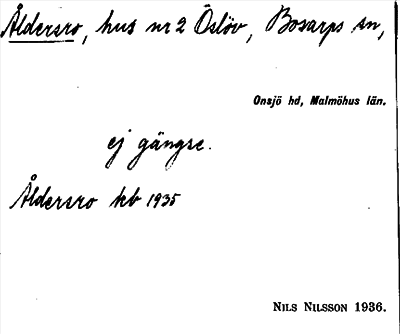 Åldersro, hus nr 2 Öslöv, Bosarps sn,
Onsjö hd, Malmöhus län.
ej gängse.
Åldersro teb 1935
NILS NILSSON 1936.